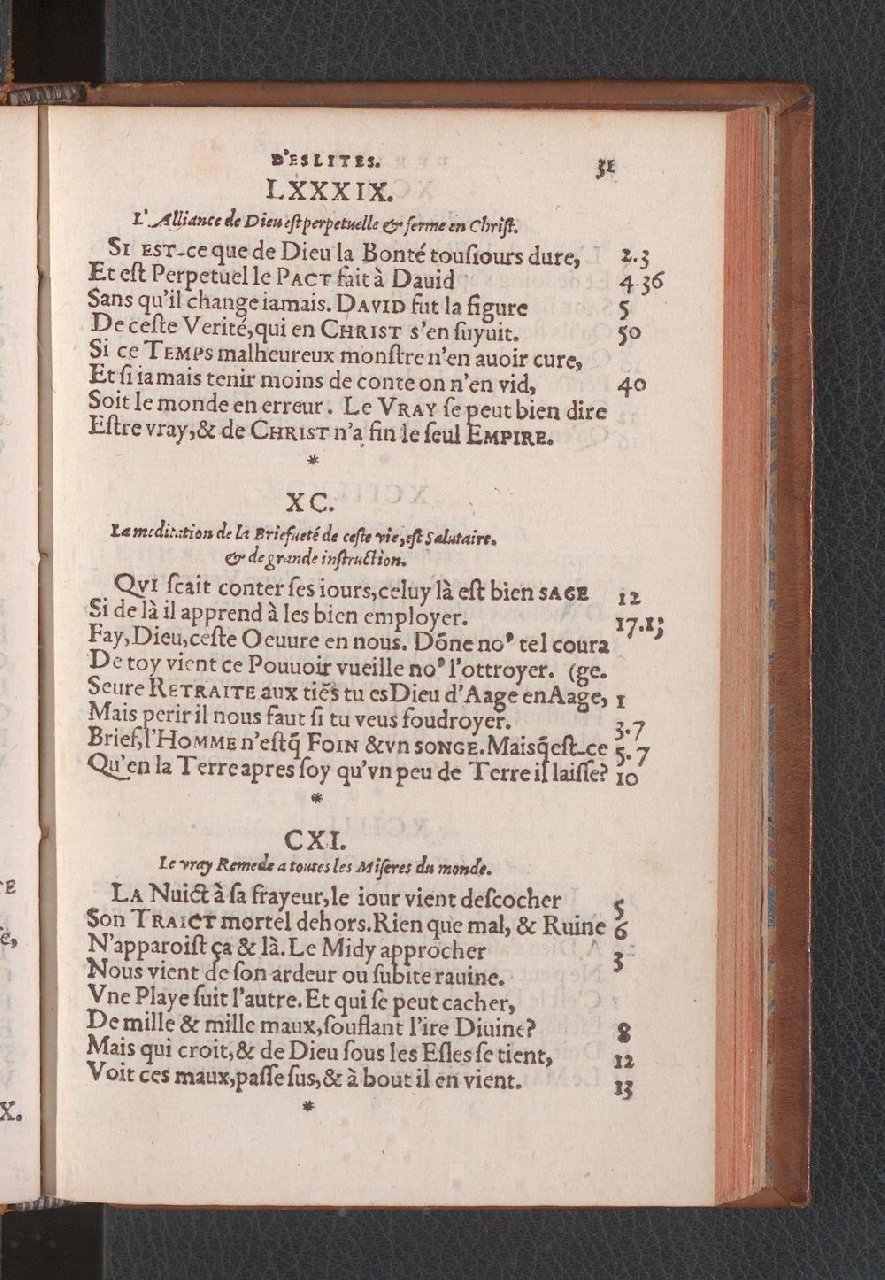 D'ESLITES. 31
LXXXIX.
L'Alliance de Dieu est perpetuelle & ferme en Christ.
SI EST-ce que de Dieu la Bonté tousiours dure, 2.3
Et est Perpetuel le PACT fait à Dauid 4 36
Sans qu'il change iamais. DAVID fut la figure 5
De ceste Verité, qui en CHRIST s'en suyuit. 50
Si ce TEMPS malheureux monstre n'en auoir cure,
Et si iamais tenir moins de conte on n'en vid, 40
Soit le monde en erreur. Le VRAY se peut bien dire
Estre vray, & de CHRIST n'a fin le seul EMPIRE.
*
XC.
La meditation de la Briefueté de ceste vie, est Salutaire,
& de grande instruction.
QVI scait conter ses iours, celuy là est bien SAGE 12
Si de là il apprend à les bien employer. 17.15
Fay, Dieu, ceste Oeuure en nous. Dōne noꝰ tel coura
De toy vient ce Pouuoir vueille noꝰ l'ottroyer. (ge.
Seure RETRAITE aux tiēs tu es Dieu d'Aage en Aage, 1
Mais perir il nous faut si tu veus foudroyer. 3.7
Brief, l'HOMME n'est q̃ FOIN & vn SONGE. Mais q̃ est-ce 5.7
Qu'en la Terre apres soy qu'vn peu de Terre il laisse? 10
*
CXI.
Le vray Remede a toutes les Miseres du monde.
LA Nuict à sa frayeur, le iour vient descocher 5
Son TRAICT mortel dehors. Rien que mal, & Ruine 6
N'apparoist ça & là. Le Midy approcher 3
Nous vient de son ardeur ou subite rauine.
Vne Playe suit l'autre. Et qui se peut cacher,
De mille & mille maux, souflant l'ire Diuine? 8
Mais qui croit, & de Dieu sous les Esles se tient, 12
Voit ces maux, passe sus, & à bout il en vient. 13
*
X.